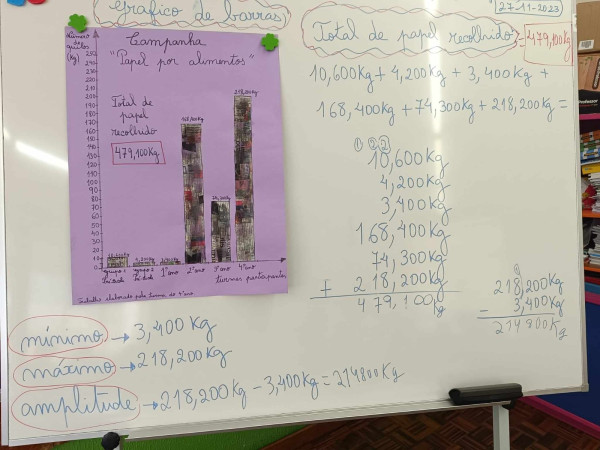 Gráfico de barras
27-11-2023
Total de papel recolhido = 479,100Kg
Número de quilos (kg)
Campanha
"Papel por alimentos"
Total de
papel
recolhido
479,100Kg
250
240
230
220
210
200
190
180
170
160
150
140
130
120
110
100
90
80
70
60
50
40
30
20
10
0
218,200Kg
168,400Kg
74,300Kg
10,600Kg
4,200Kg
3,400Kg
grupo 1
grupo 2
1º ano
2º ano
3º ano
4º ano
turmas participantes
Trabalho elaborado pela turma do 4º ano
10,600Kg + 4,200Kg + 3,400Kg +
168,400Kg + 74,300Kg + 218,200Kg =
① ② ②
10,600Kg
4,200Kg
3,400Kg
168,400Kg
74,300Kg
+ 218,200Kg
479,100Kg
①
218,200Kg
- 3,400Kg
214800Kg
mínimo → 3,400 Kg
máximo → 218,200Kg
amplitude → 218,200Kg - 3,400Kg = 214800Kg